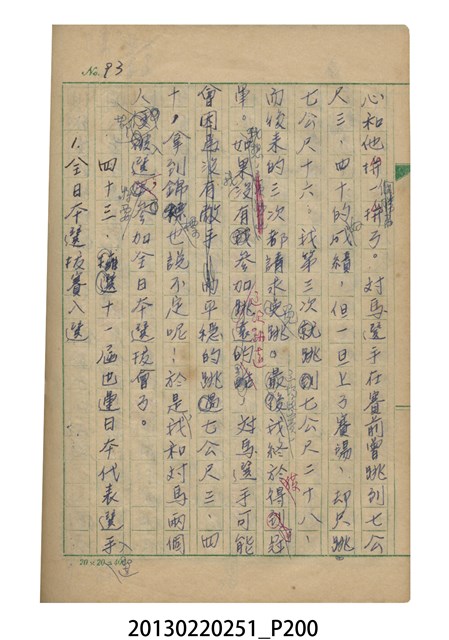 No. 93
心和他拼一拼了。對馬選手在賽前曾跳到七公
尺三、四十的成績，但一旦上了賽場，却只跳
七公尺十六。我第三次就跳到七公尺二十八，
而後来的三次都請求免跳。最後我終於得到冠
軍。如果沒有我參加跳遠的話，對馬選手可能
會因為沒有敵手，的平穩的跳過七公尺三、四
十，拿到錦標也說不定呢！於是我和對馬兩個
人被選參加全日本選拔會了。
四十三、 十一届世運日本代表選手
入選
1. 全日本選拔賽入選
20×20
20130220251_P200